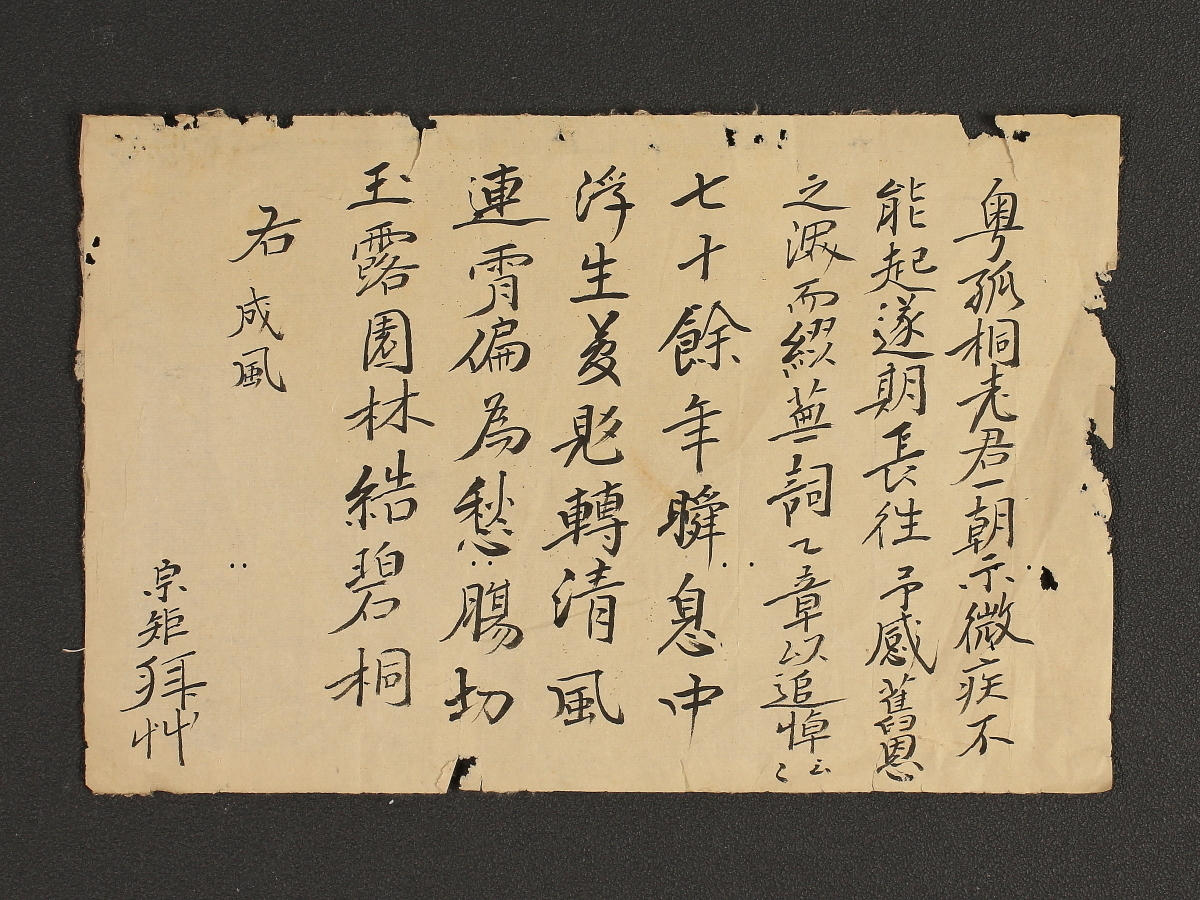 粤孤桐老君一朝示微疾不
能起遂期長往予感舊恩
之深而綴蕪詞乙章以追悼云〻
七十餘年瞬息中
浮生夢覺轉清風
連霄偏為愁腸切
玉露園林結碧桐
右 成風
宗矩拜艸